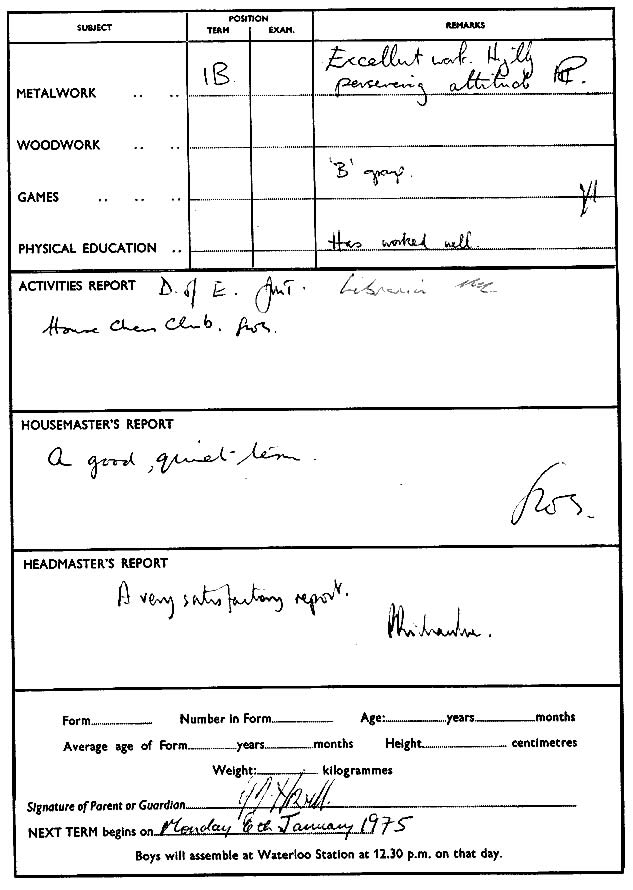 SUBJECT
POSITION
TERM EXAM.
REMARKS
METALWORK .. ..
1B
Excellent work. Highly
persevering attitude
WOODWORK .. ..
GAMES .. .. ..
'B' group.
PHYSICAL EDUCATION ..
Has worked well.
ACTIVITIES REPORT D. of E. Librarian
House Chess Club.
HOUSEMASTER'S REPORT
A good, quiet term.
HEADMASTER'S REPORT
A very satisfactory report.
Form Number in Form Age: years months
Average age of Form years months Height centimetres
Weight: kilogrammes
Signature of Parent or Guardian
NEXT TERM begins on Monday 6th January 1975
Boys will assemble at Waterloo Station at 12.30 p.m. on that day.